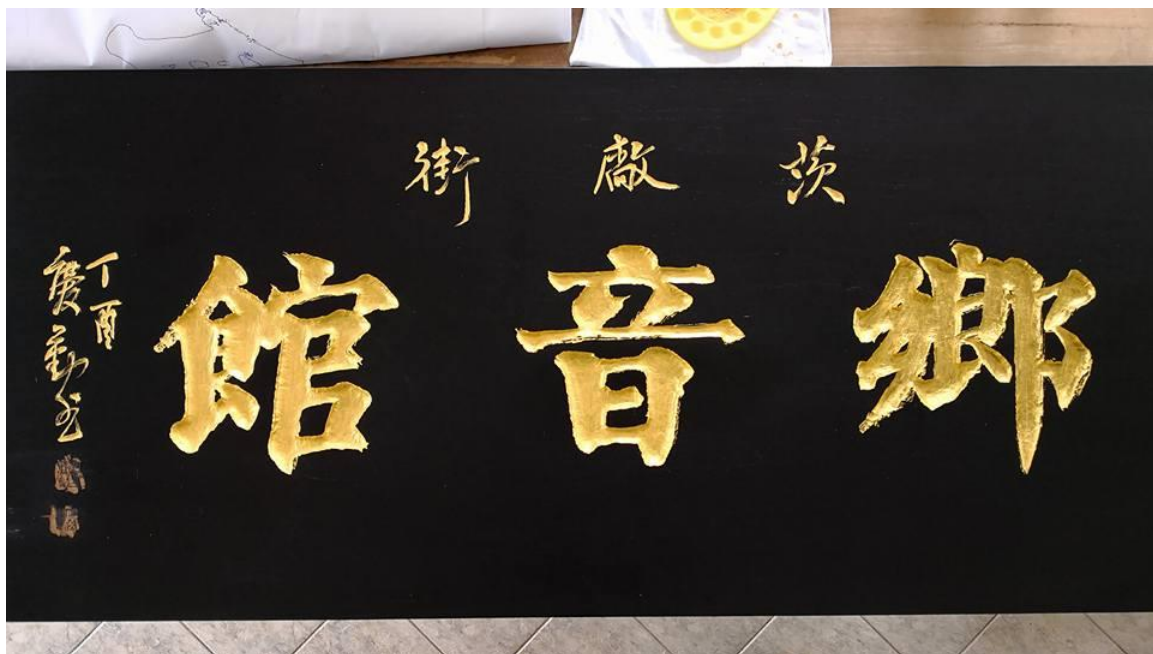 茨廠街
鄉音館
丁酉
慶勤書